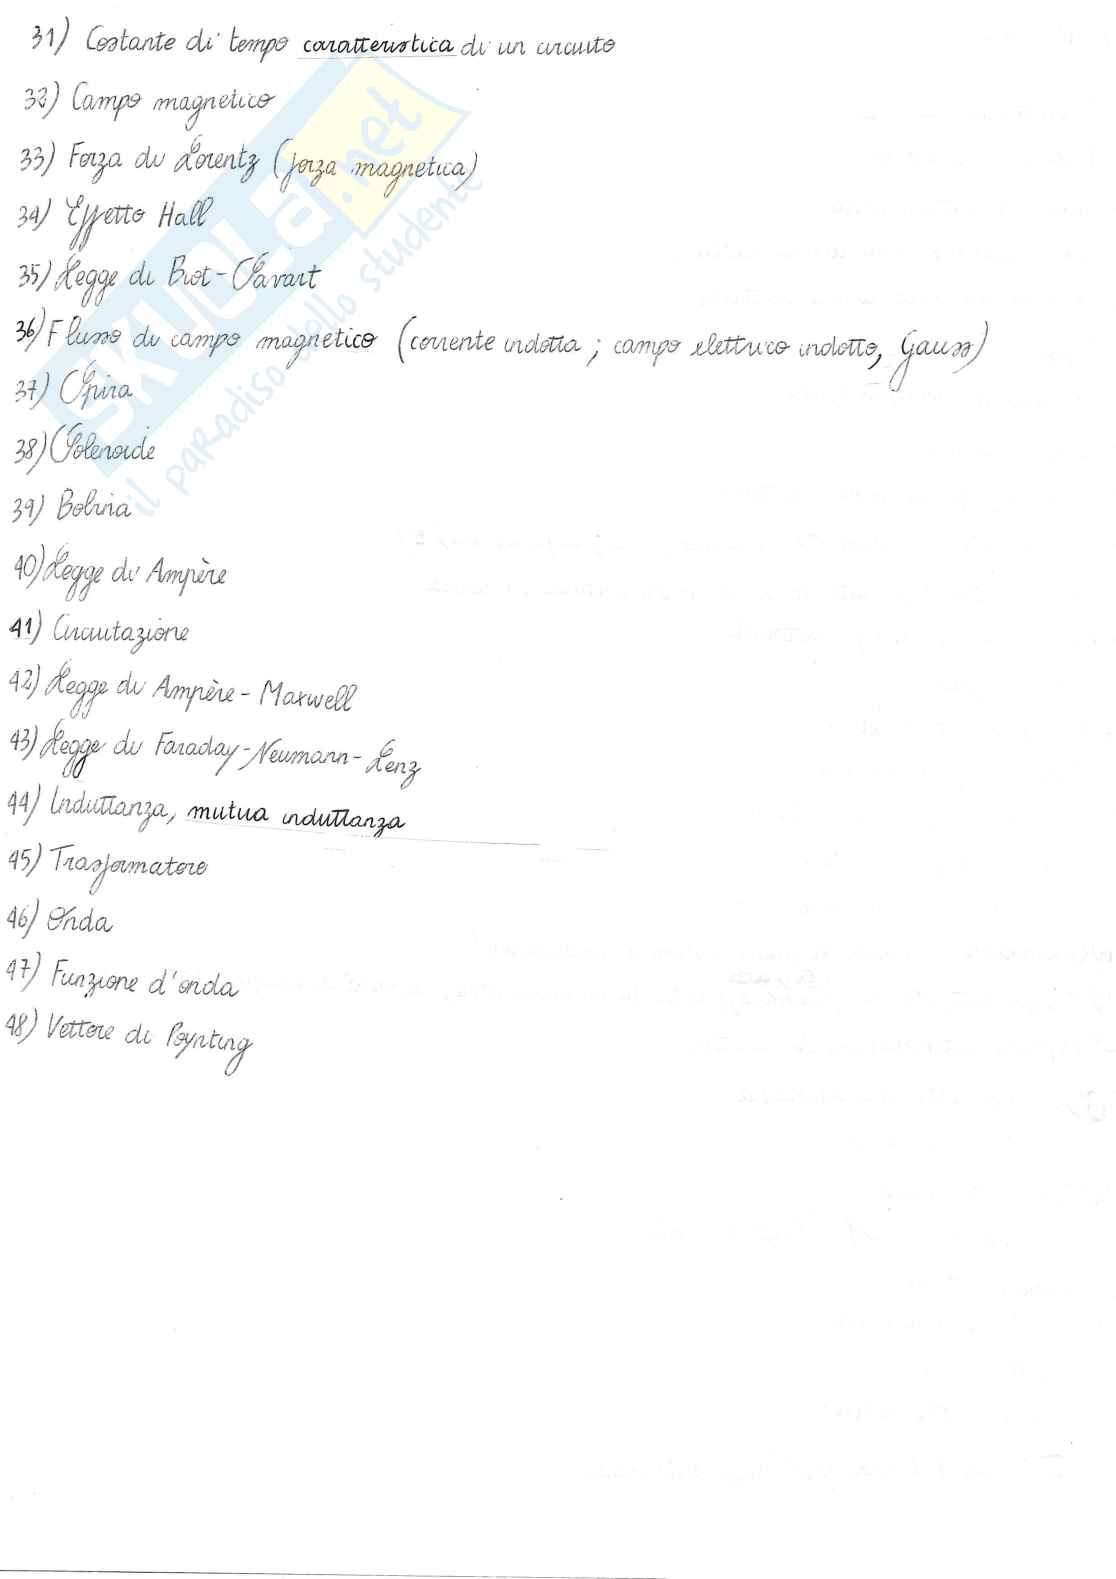 31) Costante di tempo caratteristica di un circuito
32) Campo magnetico
33) Forza di Lorentz (forza magnetica)
34) Effetto Hall
35) Legge di Biot-Savart
36) Flusso di campo magnetico (corrente indotta; campo elettrico indotto, Gauss)
37) Spira
38) Solenoide
39) Bobina
40) Legge di Ampère
41) Circuitazione
42) Legge di Ampère-Maxwell
43) Legge di Faraday-Neumann-Lenz
44) Induttanza, mutua induttanza
45) Trasformatore
46) Onda
47) Funzione d'onda
48) Vettore di Poynting
SKUOLA.net
il paradiso dello studente